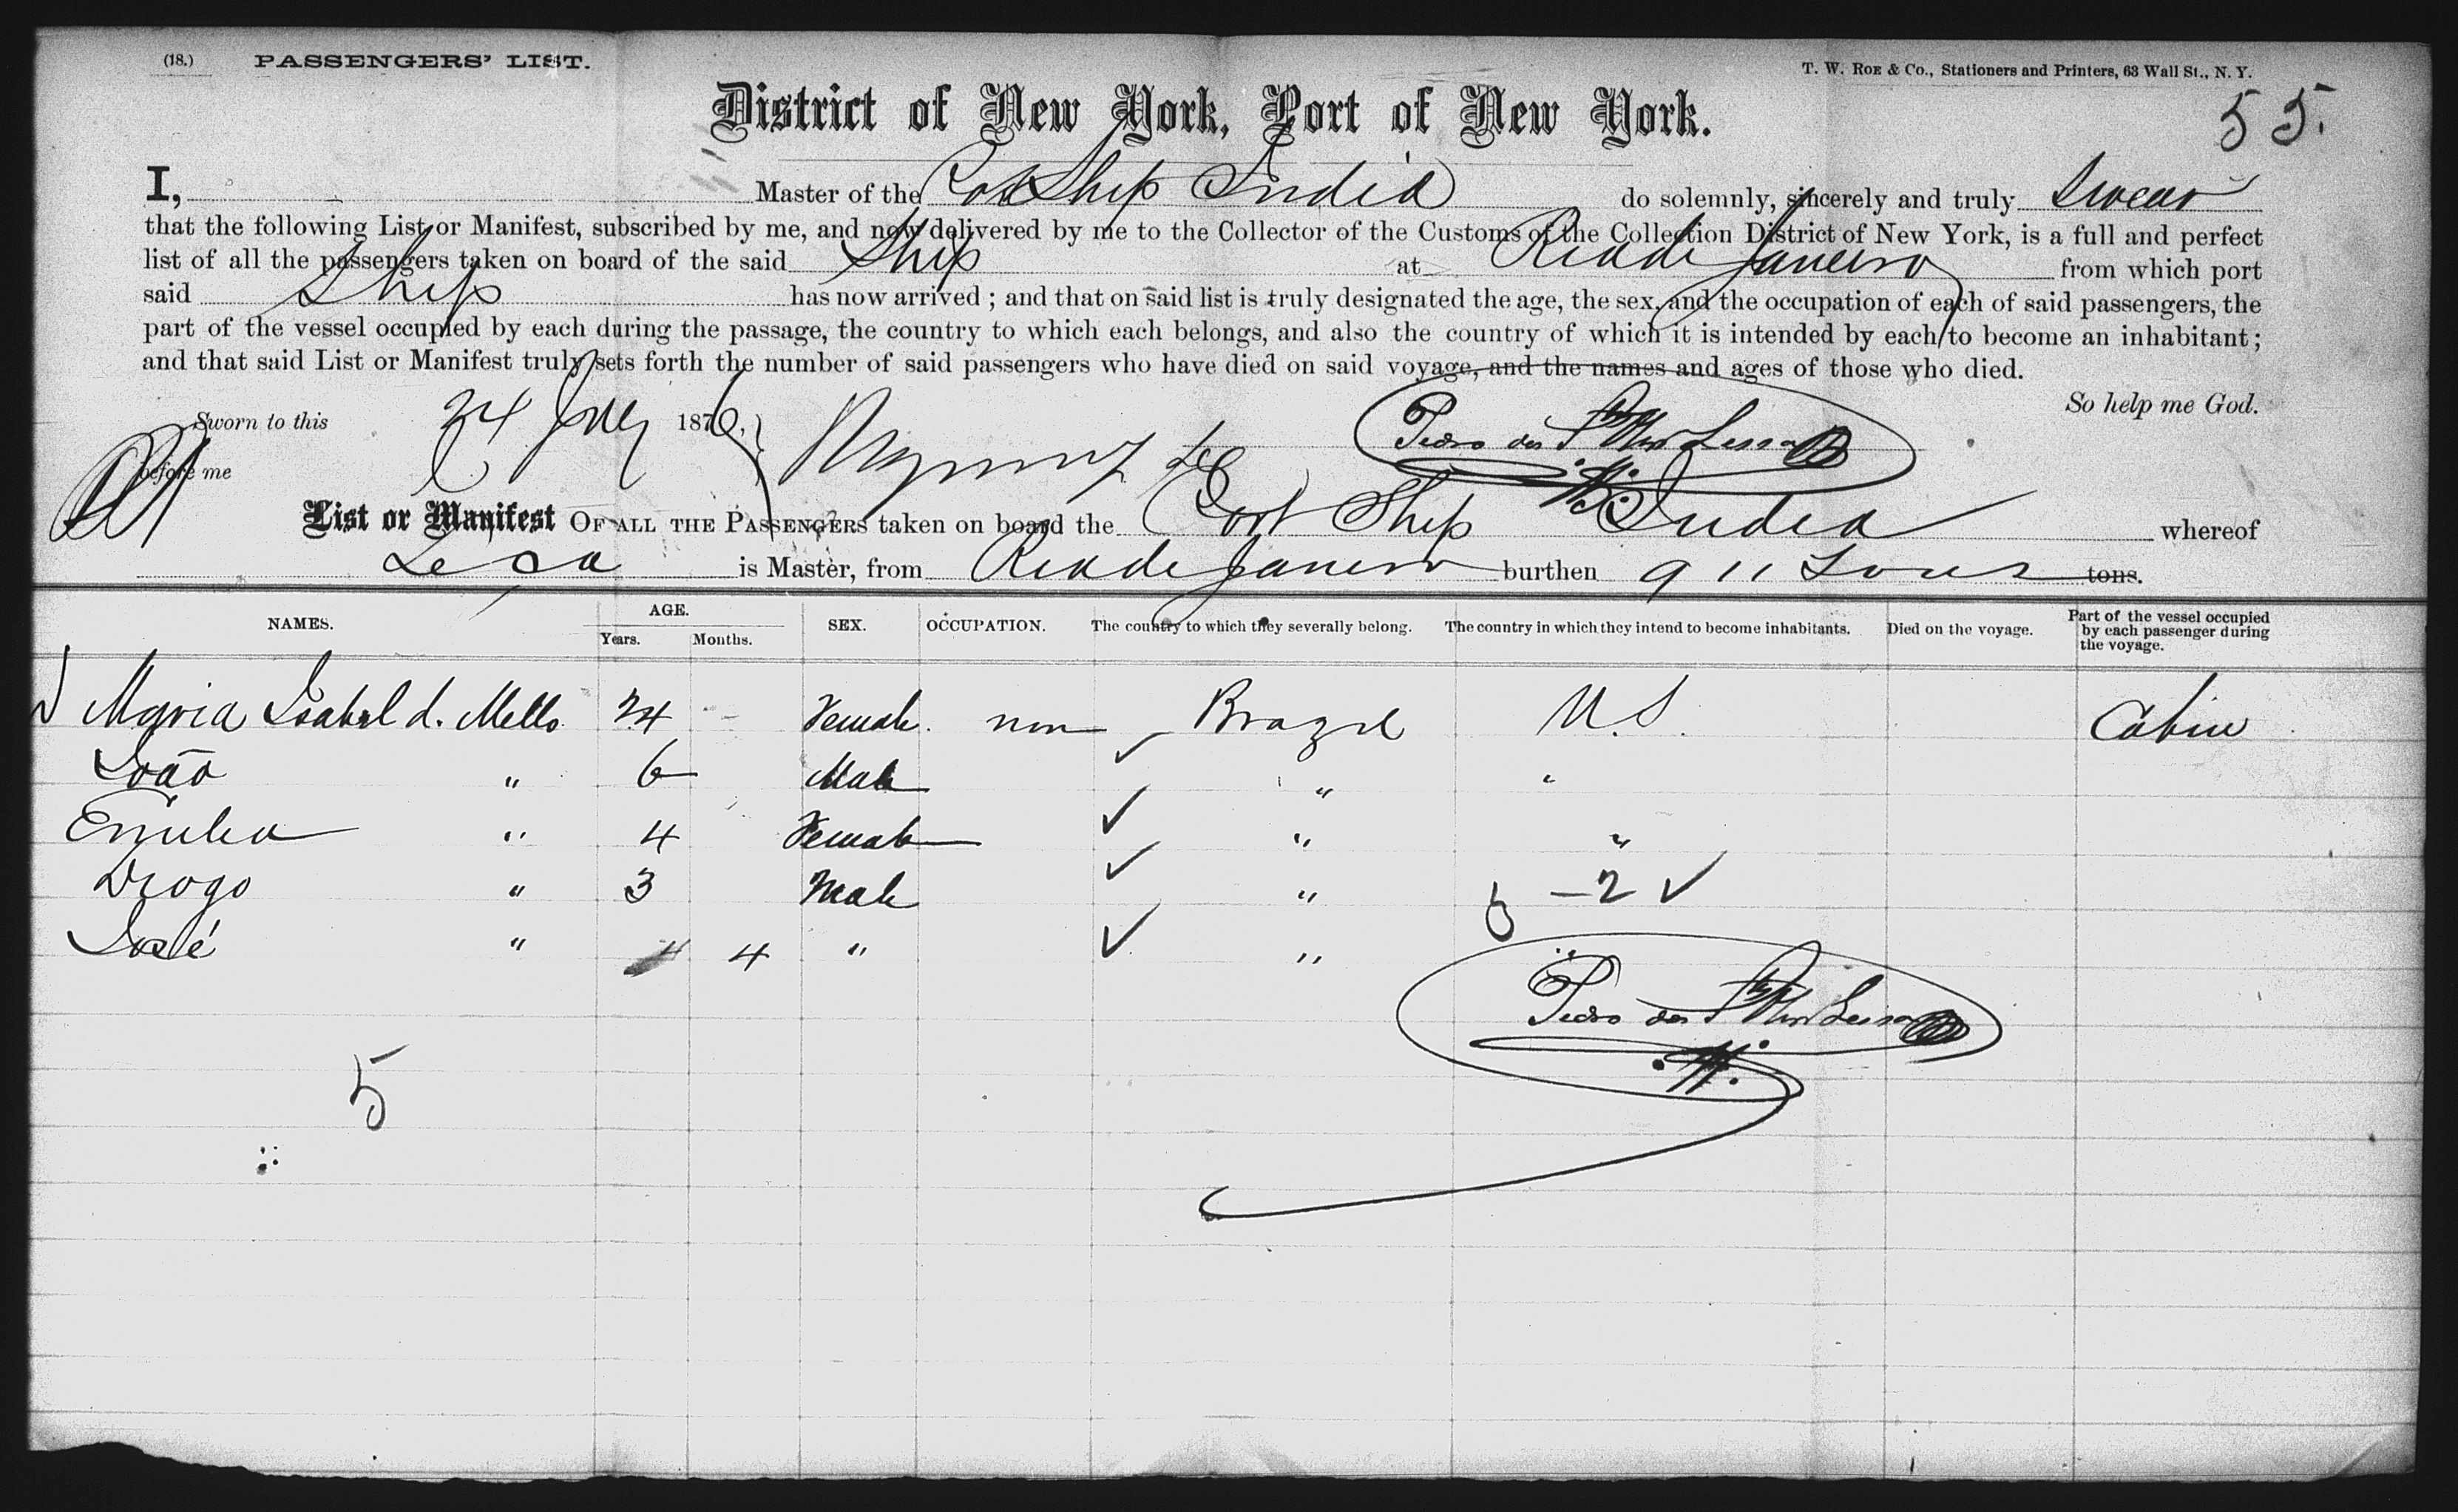 (18.) PASSENGERS' LIST.
T. W. ROE & Co., Stationers and Printers, 63 Wall St., N. Y.
55.
District of New York, Port of New York.
I, Master of the Ship India do solemnly, sincerely and truly swear
that the following List or Manifest, subscribed by me, and now delivered by me to the Collector of the Customs of the Collection District of New York, is a full and perfect
list of all the passengers taken on board of the said Ship at Rio de Janeiro from which port
said Ship has now arrived; and that on said list is truly designated the age, the sex, and the occupation of each of said passengers, the
part of the vessel occupied by each during the passage, the country to which each belongs, and also the country of which it is intended by each to become an inhabitant;
and that said List or Manifest truly sets forth the number of said passengers who have died on said voyage, and the names and ages of those who died.
So help me God.
Sworn to this 24 July 1876, Pedro dos Lessa
before me
List or Manifest OF ALL THE PASSENGERS taken on board the Port Ship India whereof
Lesa is Master, from Rio de Janeiro burthen 911 Tons tons.
NAMES. AGE. Years. Months. SEX. OCCUPATION. The country to which they severally belong. The country in which they intend to become inhabitants. Died on the voyage. Part of the vessel occupied by each passenger during the voyage.
Maria Isabel d. Mello 24 Female. non Brazil U.S. Cabin
João " 6 Male " "
Emilia " 4 Female " "
Diogo " 3 Male " 5 - 2
José " 4 " "
Pedro dos Lessa
5